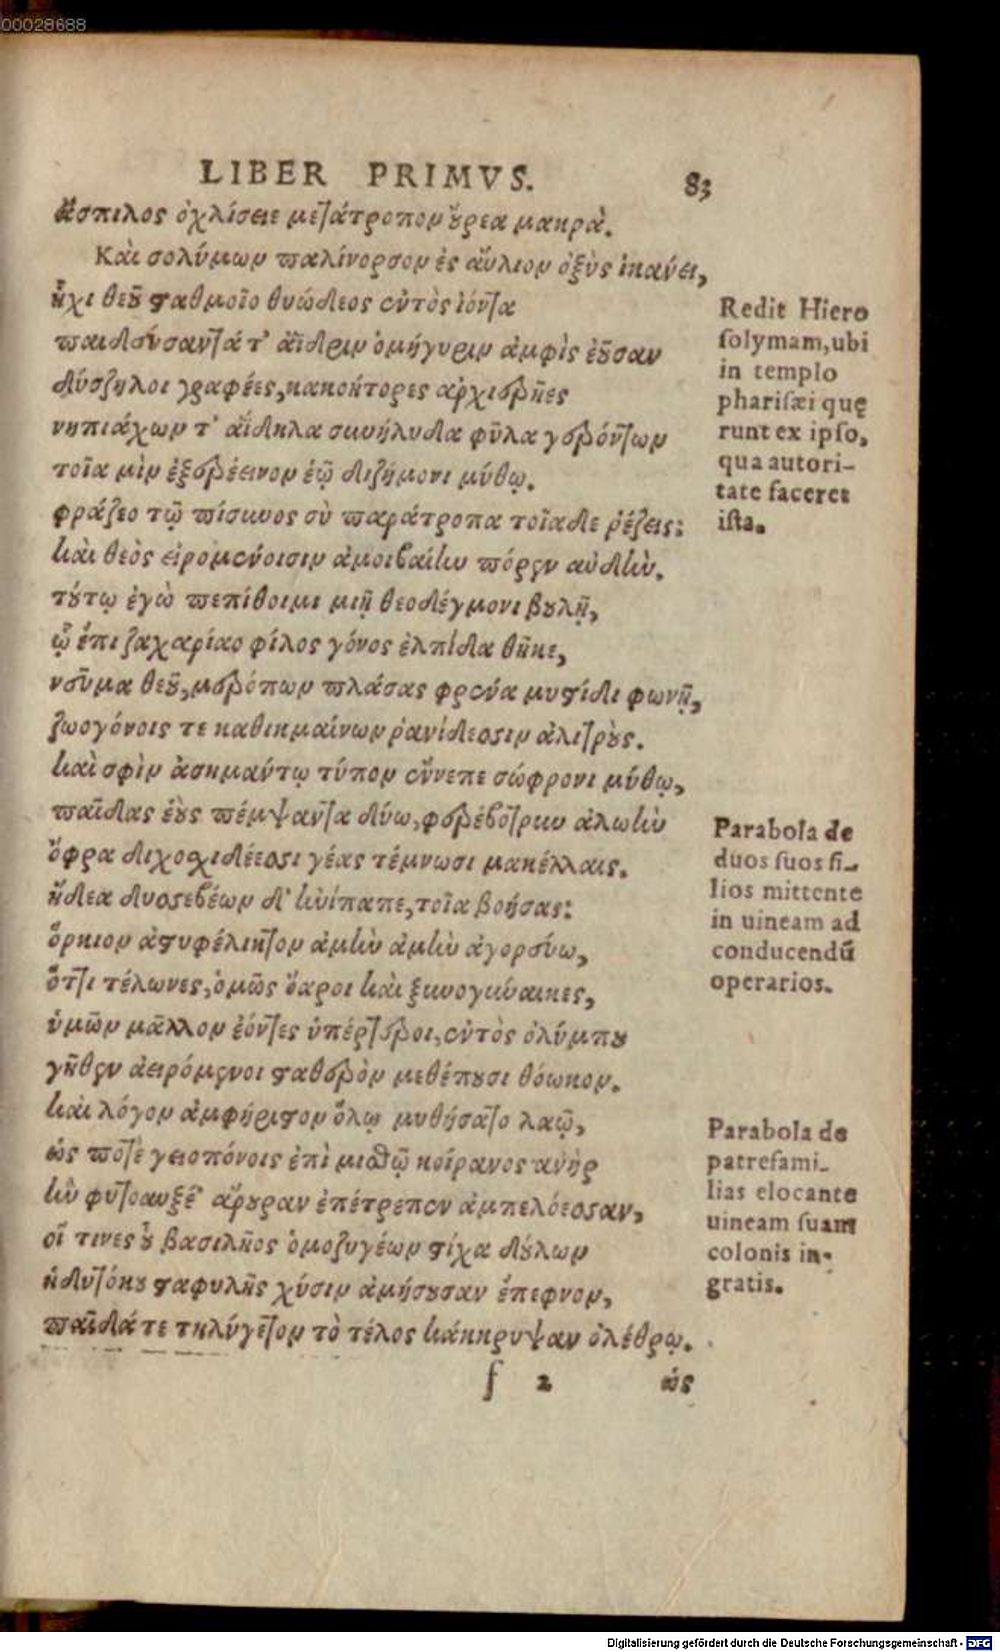 00028688
LIBER PRIMVS. 83
ἄσπιλος ὀχλίσειε μετάτροπον οὔρεα μακρά.
Καὶ σολύμων παλίνορσον ἐς αὔλιον ὀξὺς ἱκάνει,
ἧχι θεοῦ σταθμοῖο θυώδεος ἐντὸς ἰόντα
παιδεύσαντά τ' ἄϊδριν ὁμήγυριν ἀμφὶς ἔουσαν
δύσζηλοι γραφέες, κακοήτορες ἀρχιερῆες
νηπιάχων τ' ἀΐδηλα σκυήλυδα φῦλα γερόντων
τοῖα μὶν ἐξερέεινον ἑῷ διζήμονι μύθῳ.
φράζεο τῷ πίσυνος σὺ παράτροπα τοῖαδε ῥέζεις;
καὶ θεὸς εἰρομένοισιν ἀμοιβαίην πόρεν αὐδήν.
τούτῳ ἐγὼ πεπίθοιμι μιῇ θεοδέγμονι βουλῇ,
ᾧ ἔπι ζαχαρίαο φίλος γόνος ἐλπίδα θῆκε,
νεῦμα θεοῦ, μερόπων πλάσας φρένα μυστίδι φωνῇ,
ζωογόνοις τε καθικμαίνων ῥανίδεσσιν ἀλιτρούς.
καὶ σφὶν ἀσημάντῳ τύπον ἔννεπε σώφρονι μύθῳ,
παῖδας ἑοὺς πέμψαντα δύω, φερέβοτρυν ἀλωὴν
ὄφρα διχοσχιδέεσσι γέας τέμνωσι μακέλλαις.
ἤθεα δυσσεβέων δ' ἠνίπαπε, τοῖα βοήσας:
ὅρκιον ἀστυφέλικτον ἀμὴν ἀμὴν ἀγορεύω,
ὅττι τέλωνες, ὁμῶς ὄαροι καὶ ξυνογύναικες,
ὑμῶν μᾶλλον ἐόντες ὑπέρτεροι, ἐντὸς ὀλύμπου
γῆθεν ἀειρόμενοι σταθερὸν μεθέπουσι θόωκον.
καὶ λόγον ἀμφήριστον ὅλῳ μυθήσατο λαῷ,
ὡς ποτὲ γειοπόνοις ἐπὶ μισθῷ κοίρανος ἀνὴρ
ἣν φυτοαυξέ' ἄρουραν ἐπέτρεπεν ἀμπελόεσσαν,
οἵ τινες οὗ βασιλῆος ὁμοζυγέων στίχα δούλων
ἡδυτόκου σταφυλῆς χύσιν ἀμήσουσαν ἔπεφνον,
παῖδά τε τηλύγετον τὸ τέλος κάκκρυψαν ὀλέθρῳ.
f 2 ὡς
Redit Hiero
solymam, ubi
in templo
pharisæi quę
runt ex ipso,
qua autori-
tate faceret
ista.
Parabola de
duos suos fi-
lios mittente
in uineam ad
conducendū
operarios.
Parabola de
patrefami-
lias elocante
uineam suam
colonis in-
gratis.
Digitalisierung gefördert durch die Deutsche Forschungsgemeinschaft - DFG